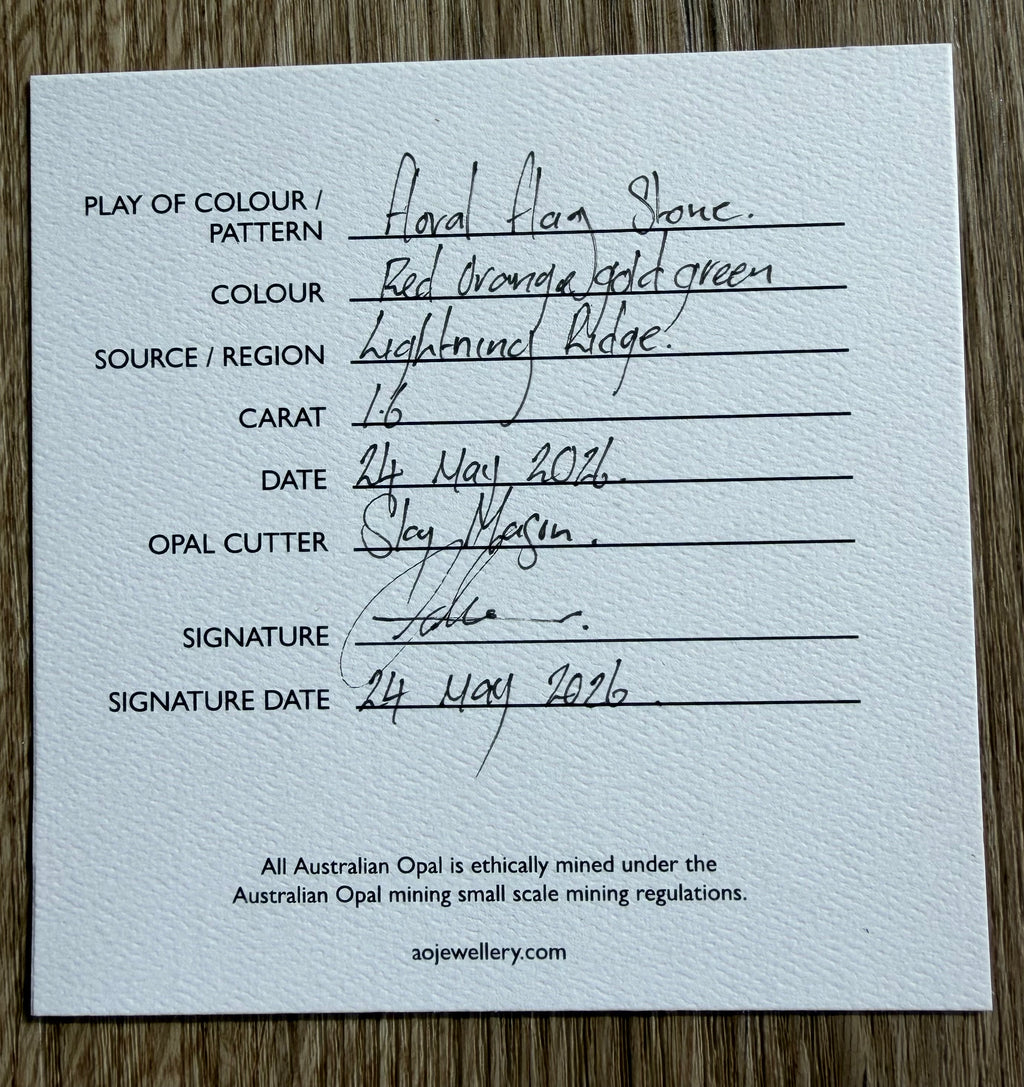 PLAY OF COLOUR / PATTERN Floral Flag Stone.
COLOUR Red Orange gold green
SOURCE / REGION Lightning Ridge.
CARAT 1.6
DATE 24 May 2026.
OPAL CUTTER Mason.
SIGNATURE
SIGNATURE DATE 24 May 2026.
All Australian Opal is ethically mined under the
Australian Opal mining small scale mining regulations.
aojewellery.com